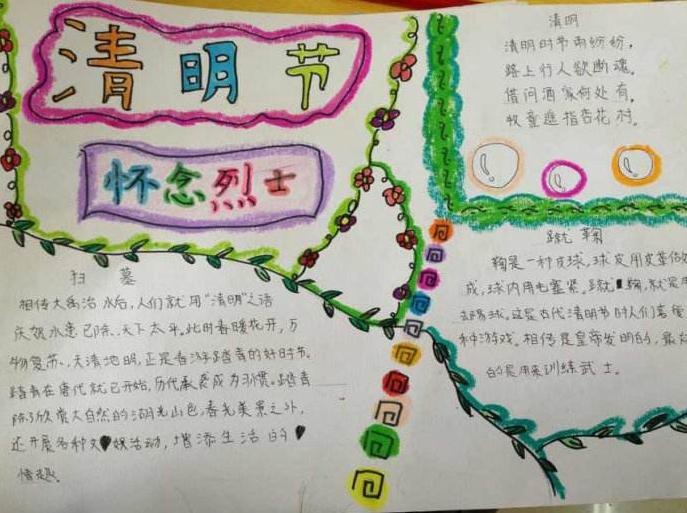 清明节
怀念烈士
清明
清明时节雨纷纷,
路上行人欲断魂。
借问酒家何处有,
牧童遥指杏花村。
扫墓
相传大禹治水后,人们就用“清明”之语
庆贺水患已除,天下太平。此时春暖花开,万
物复苏,天清地明,正是春游踏青的好时节。
踏青在唐代就已开始,历代承袭成为习惯。踏青
除了欣赏大自然的湖光山色,春光美景之外,
还开展各种文娱活动,增添生活的
情趣。
蹴鞠
鞠是一种皮球,球皮用皮革做
成,球内用毛塞紧。蹴鞠,就是用
去踢球。这是古代清明节时人们喜爱
种游戏。相传是皇帝发明的,最
的是用来训练武士。